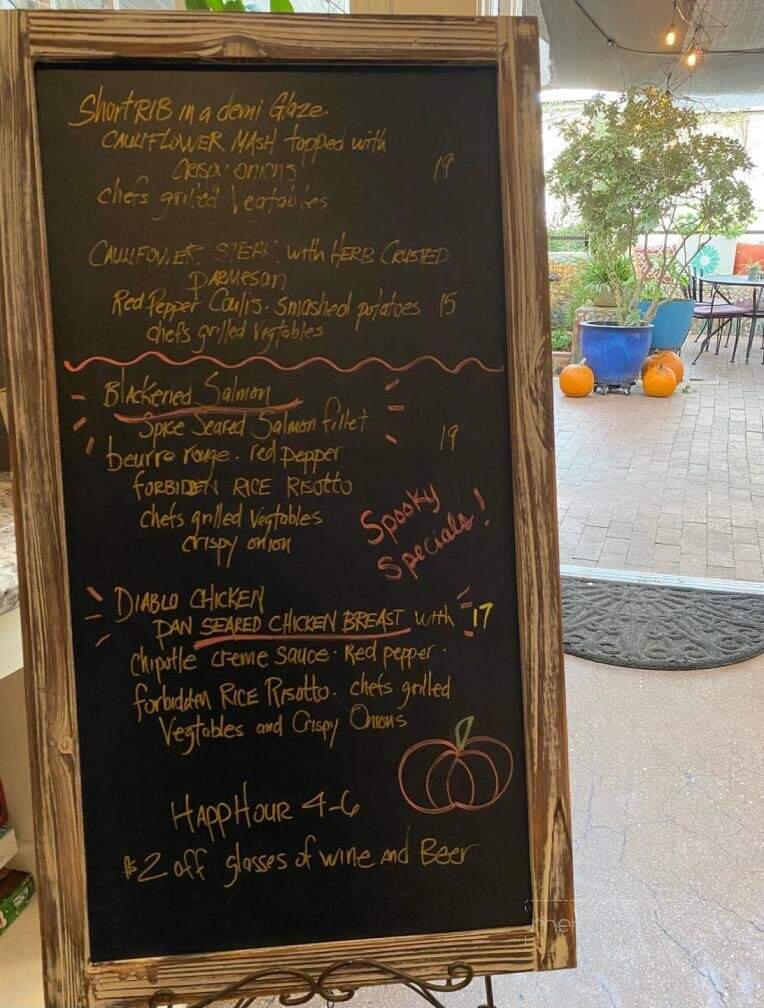 ShortRIB in a demi Glaze.
CAULIFLOWER MASH topped with
Crispy onions 19
chefs grilled Vegtables
CAULIFOWER STEAK with HERB CRUSTED
PARMESAN
Red Pepper Coulis. smashed potatoes 15
chefs grilled Vegtables
Blackened Salmon
Spice Seared Salmon fillet
beurre rouge. red pepper 19
FORBIDEN RICE RISOTTO
chefs grilled Vegtables
crispy onion
Spooky
Specials!
DIABLO CHICKEN
PAN SEARED CHICKEN BREAST with 17
chipotle creme sauce. Red pepper.
forbidden RICE Risotto. chefs grilled
Vegtables and Crispy Onions
HAPPHOUR 4-6
$2 off glasses of wine AND Beer